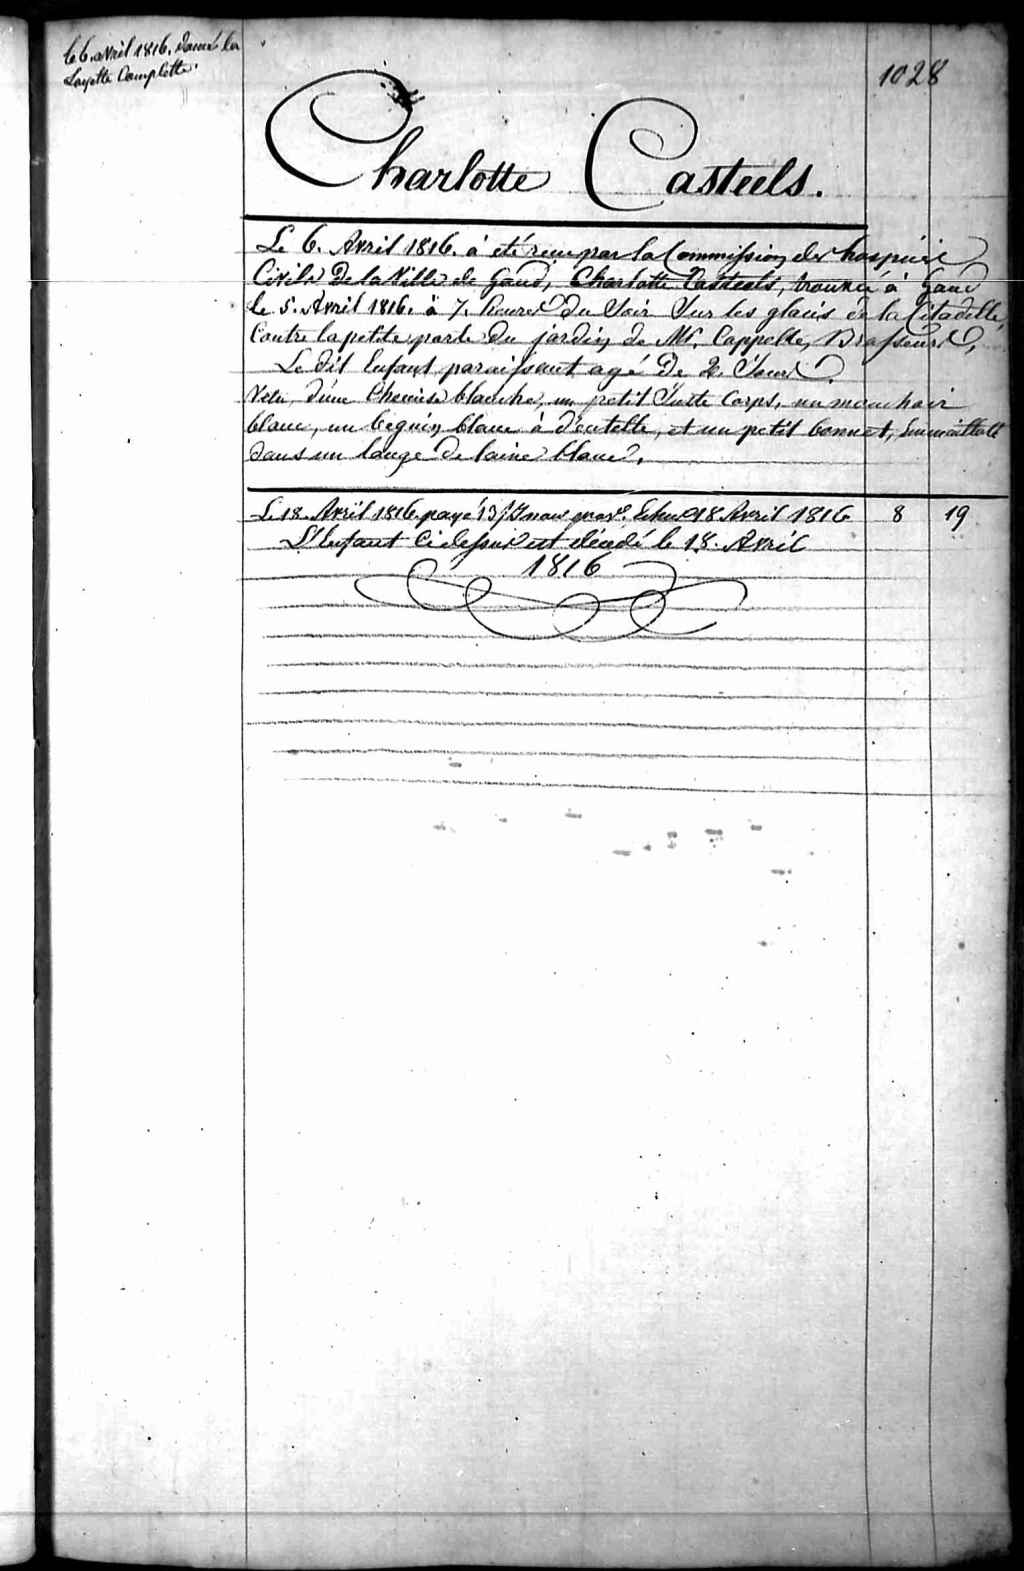 le 6. avril 1816. donné la
Layette Complette.
1028
Charlotte Casteels.
Le 6. Avril 1816. à été reçu par la Commission des hospices
Civils De la Ville de Gand, Charlotte Casteels, trouvée à Gand
le 5. Avril 1816. à 7. heures Du Soir Sur les glacis de la Citadelle,
Contre la petite porte Du jardin de Mr. Cappelle, Brasseur.
Le dit Enfant paraissant agé De 2. Jours.
Vetu, d'une Chemise blanche, un petit Juste Corps, un mouchoir
blanc, un beguin blanc à dentelle, et un petit bonnet, Emmaillotté
dans un lange De laine blanc.
Le 18. Avril 1816. payé 13/ Echu 18 Avril 1816 8 19
L'Enfant Ci dessus est décédé le 18. Avril
1816